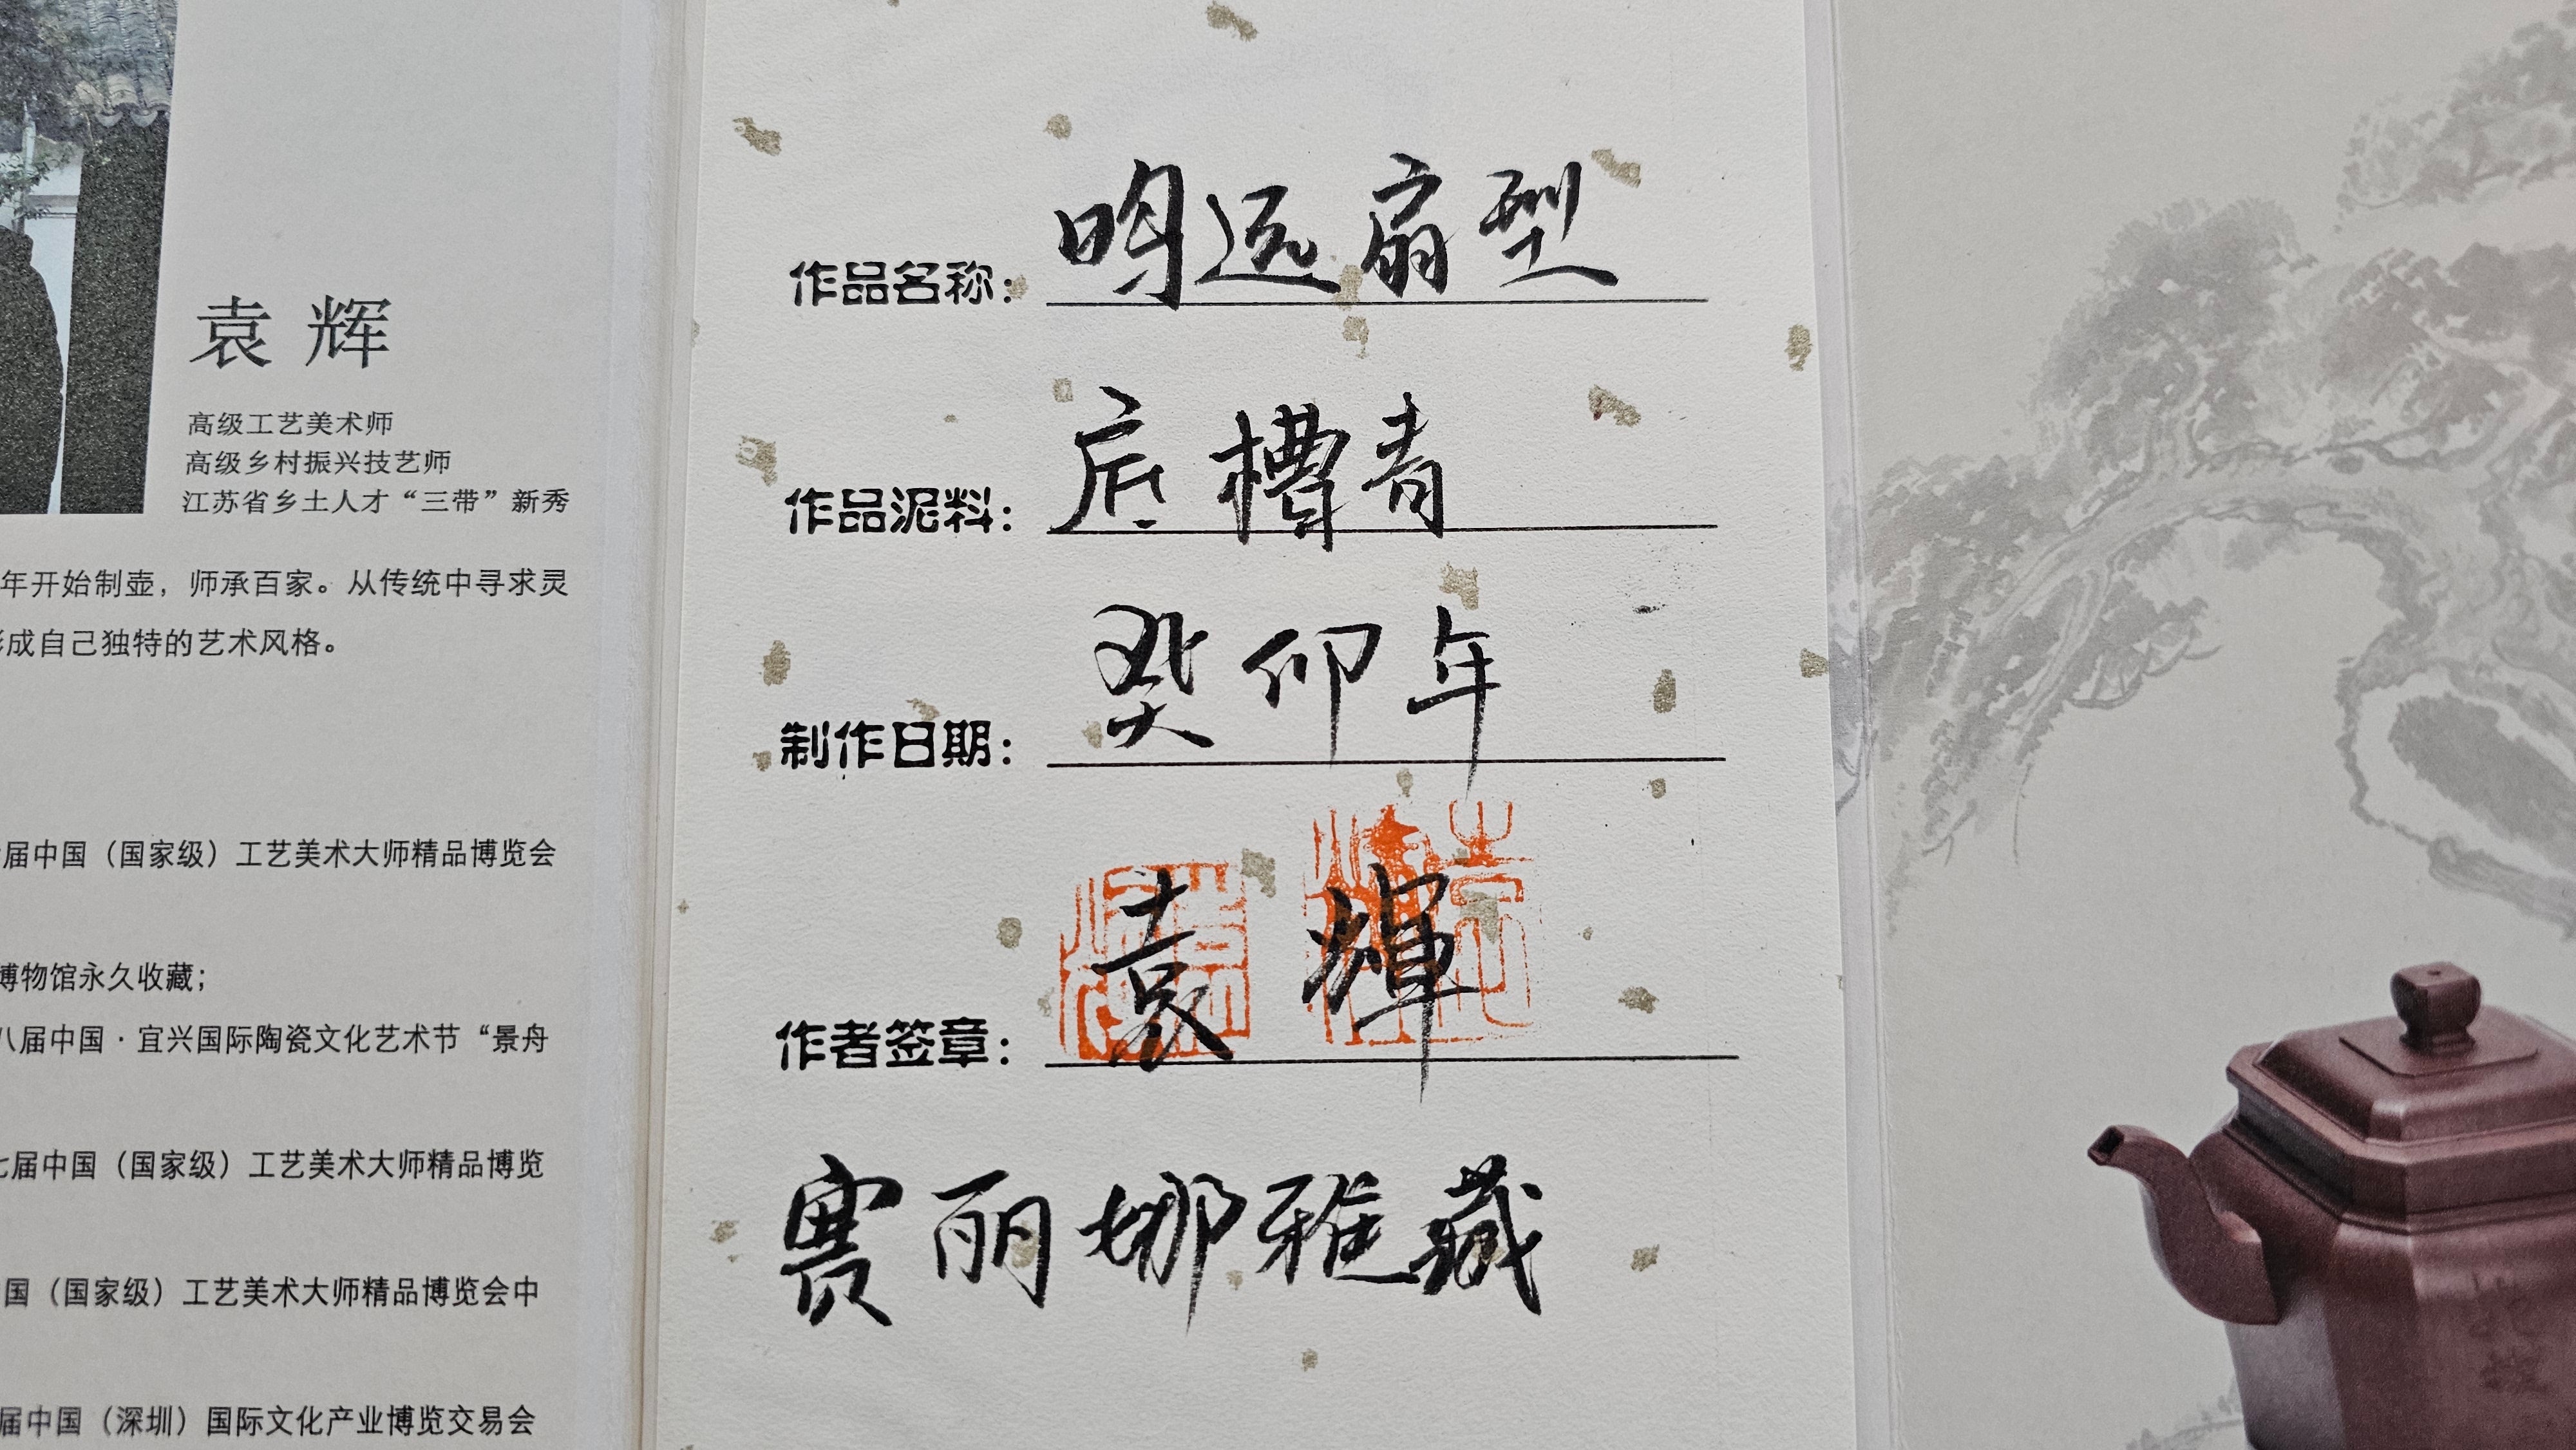 袁辉
高级工艺美术师
高级乡村振兴技艺师
江苏省乡土人才“三带”新秀
年开始制壶，师承百家。从传统中寻求灵
成自己独特的艺术风格。
届中国（国家级）工艺美术大师精品博览会
博物馆永久收藏；
八届中国·宜兴国际陶瓷文化艺术节“景舟
七届中国（国家级）工艺美术大师精品博览
国（国家级）工艺美术大师精品博览会中
届中国（深圳）国际文化产业博览交易会
作品名称： 鸣远扇型
作品泥料： 底槽青
制作日期： 癸卯年
作者签章： 袁輝
赛丽娜雅藏